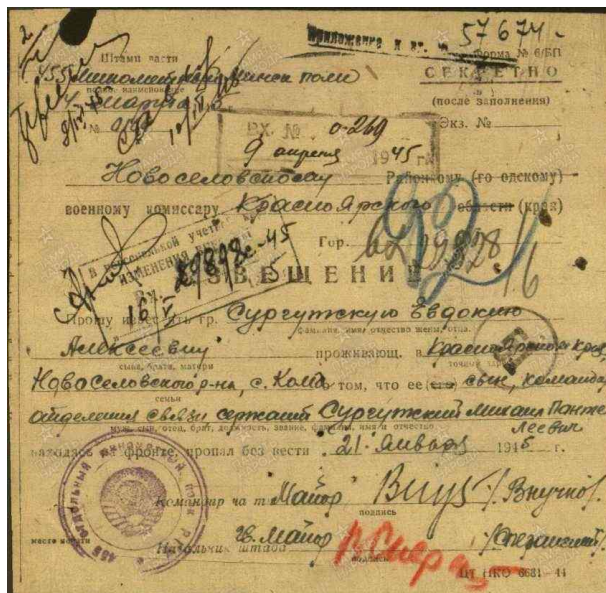 Приложение к вх. № 57674
Форма № 6/БП
Штамп части
СЕКРЕТНО
455 Минометный полк
(после заполнения)
4 марта
Экз. №
№
ВХ. № 0-269
9 апреля 1945 г.
Новоселовскому Районному (городскому)
военному комиссару Красноярского области (края)
Гор.
92
ИЗМЕНЕНИЯ
29898с-45
Вх.
16 V
ИЗВЕЩЕНИЕ
Прошу известить гр. Сургутскую Евдокию
фамилия, имя, отчество жены, отца,
Алексеевну проживающ. в Красноярском крае,
сына, брата, матери
Новоселовского р-на, с. Кома о том, что ее (его) сын, командир
семьи
отделения связи сержант Сургутский Михаил Панте
муж, сын, отец, брат, должность, звание, фамилия, имя и отчество
леевич
находясь на фронте, пропал без вести 21 января 1945 г.
Командир части Майор /Внучко/
подпись
место печати
Начальник штаба Гв. Майор
подпись
ЦТ НКО 6681-44